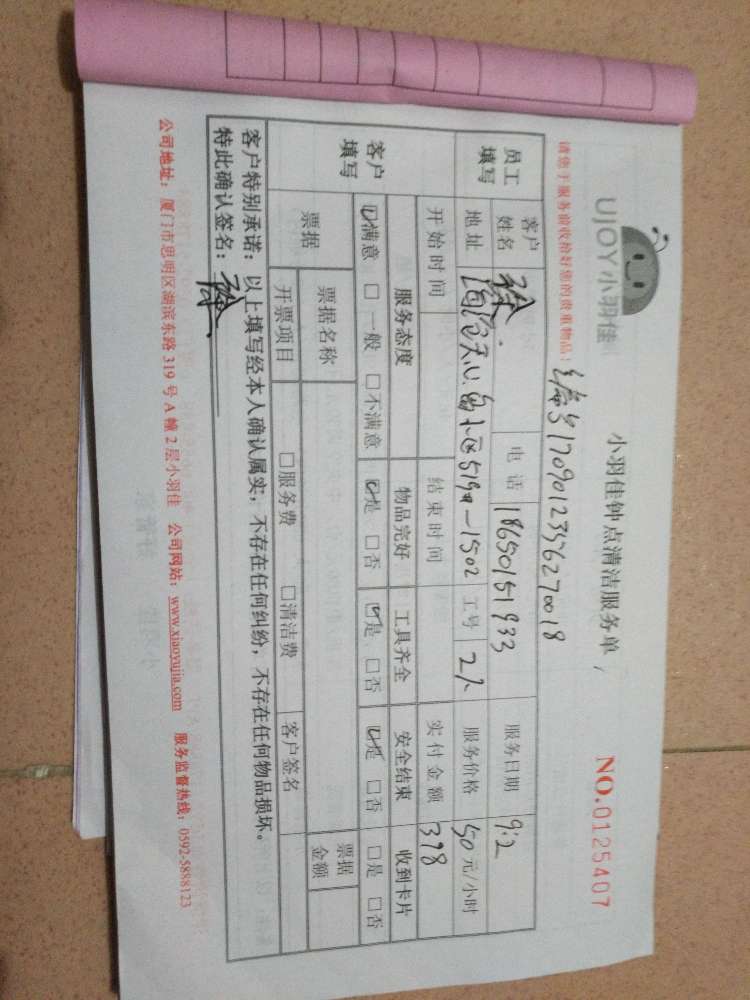 UJOY小羽佳
小羽佳钟点清洁服务单
NO.0125407
请您于服务前收拾好您的贵重物品！
编号1709012356270018
员工填写
客户姓名 徐 电话 18650151933 服务日期 9.2
地址 519# - 1502 工号 服务价格 50元/小时
开始时间 结束时间 实付金额 398
客户填写
服务态度 物品完好 工具齐全 安全结束 收到卡片
☑满意 □一般 □不满意 ☑是 □否 ☑是 □否 ☑是 □否 □是 □否
票据 票据名称 票据金额
开票项目 □服务费 □清洁费 客户签名
客户特别承诺：以上填写经本人确认属实，不存在任何纠纷，不存在任何物品损坏。
特此确认签名：徐
公司地址：厦门市思明区湖滨东路319号A幢2层小羽佳 公司网站：www.xiaoyujia.com 服务监督热线：0592-5888123